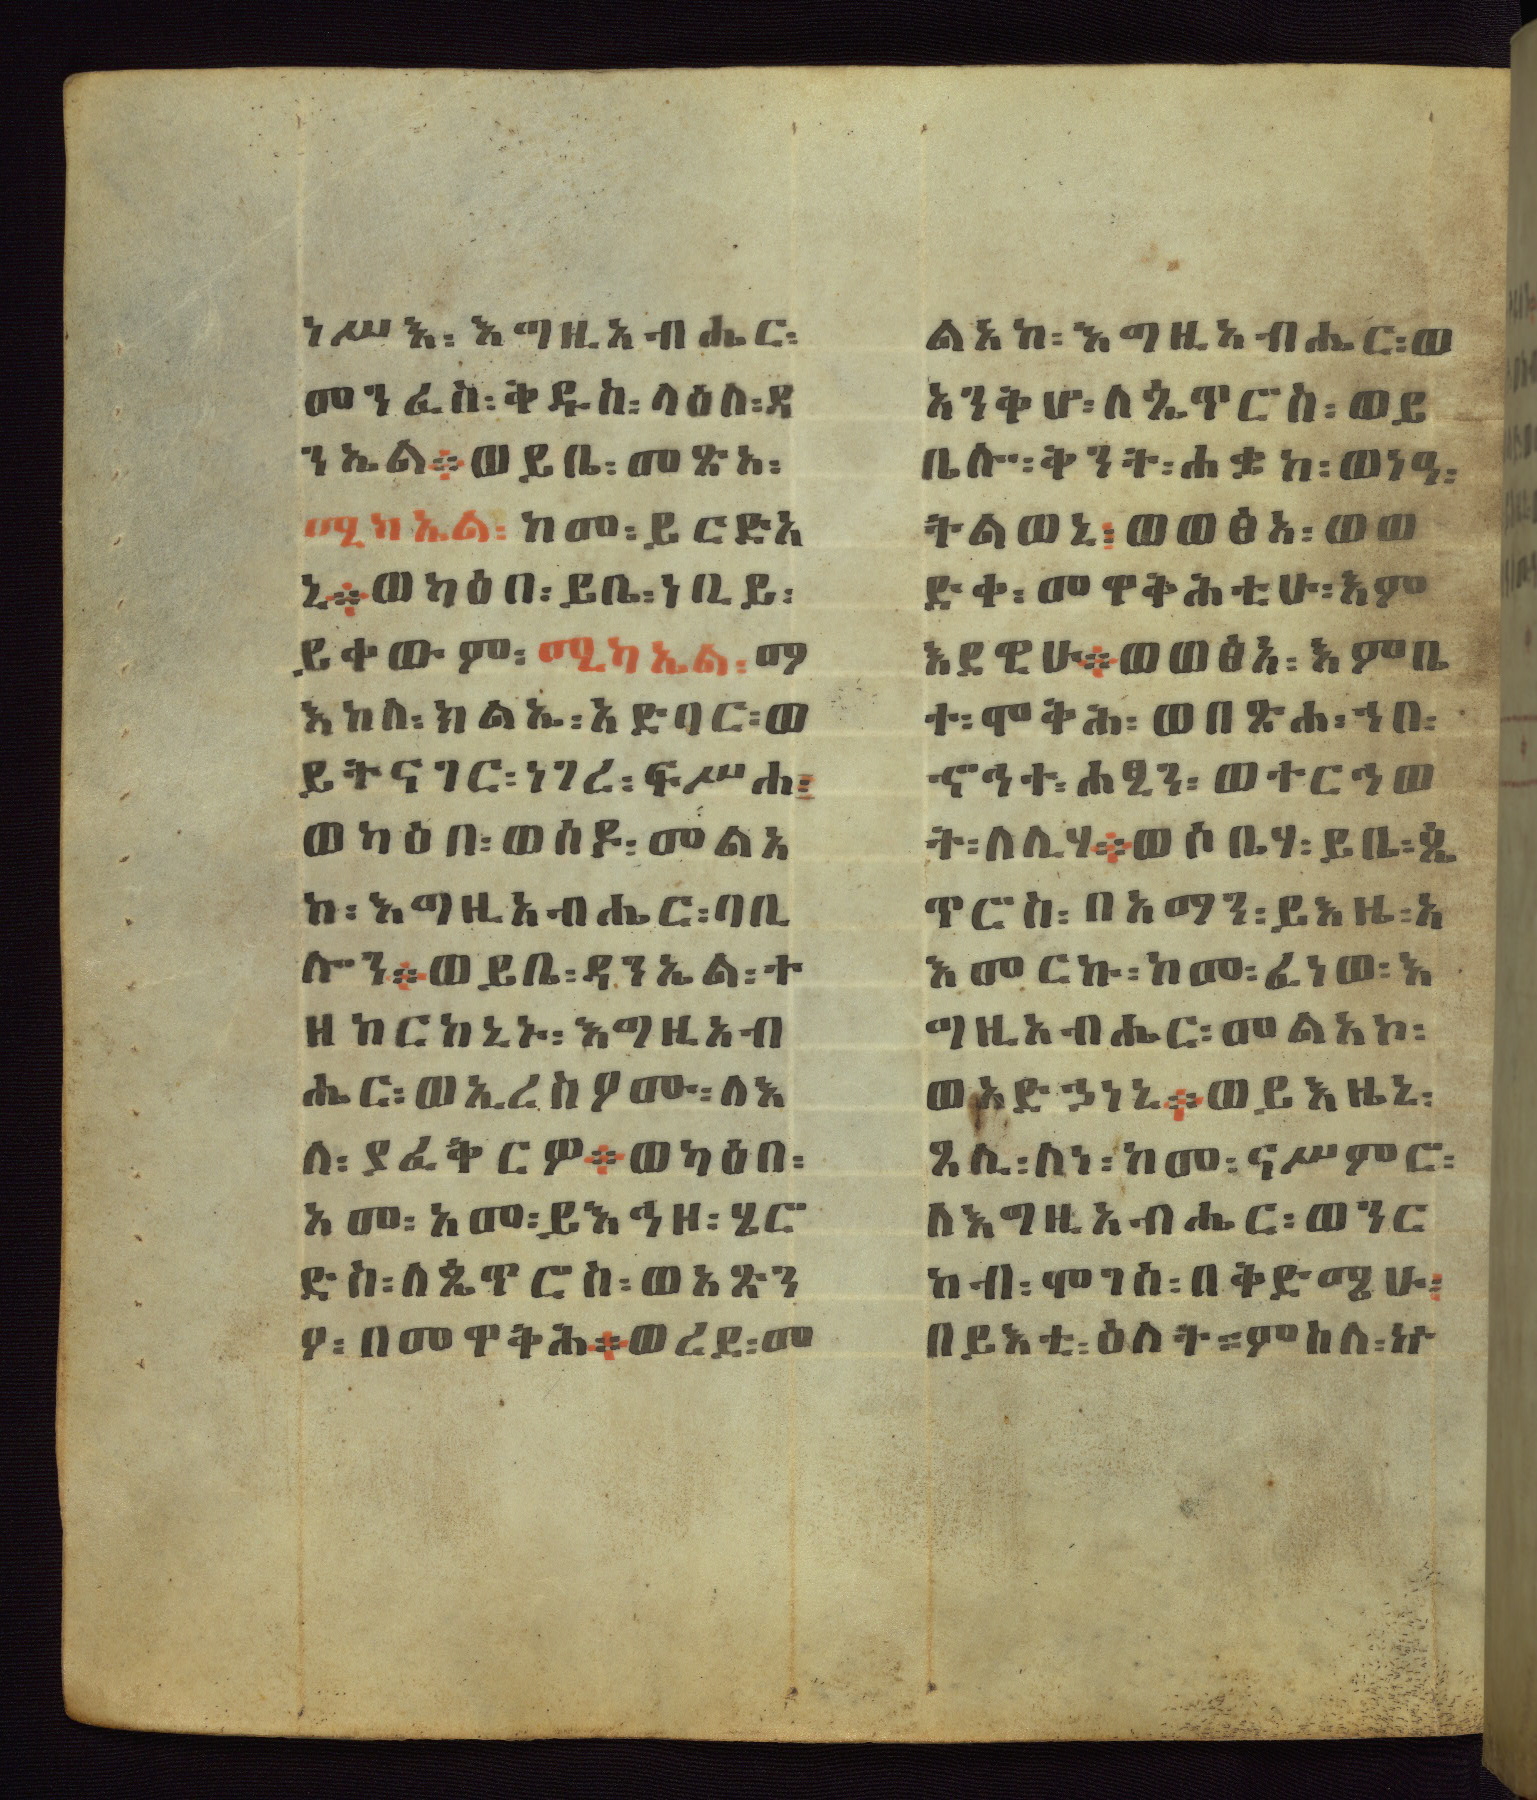 ነሥአ፡ እግዚአብሔር፡
መንፈስ፡ ቅዱስ፡ ላዕለ፡ ዳ
ንኤል። ወይቤ፡ መጽአ፡
ሚካኤል፡ ከመ፡ ይርድአ
ኒ። ወካዕበ፡ ይቤ፡ ነቢይ፡
ይቀውም፡ ሚካኤል፡ ማ
እከለ፡ ክልኤ፡ አድባር፡ ወ
ይትናገር፡ ነገረ፡ ፍሥሐ፡
ወካዕበ፡ ወሰዶ፡ መልአ
ከ፡ እግዚአብሔር፡ ባቢ
ሎን። ወይቤ፡ ዳንኤል፡ ተ
ዘከርከኒኑ፡ እግዚአብ
ሔር፡ ወኢረሰዖሙ፡ ለእ
ለ፡ ያፈቅርዎ። ወካዕበ፡
አመ፡ አመ፡ ይእኅዘ፡ ሄሮ
ድስ፡ ለጴጥሮስ፡ ወአጽን
ዖ፡ በመዋቅሕ። ወረደ፡ መ
ልአከ፡ እግዚአብሔር፡ ወ
አንቅሆ፡ ለጴጥሮስ፡ ወይ
ቤሎ፡ ቅንት፡ ሐቌከ፡ ወነዓ፡
ትልወኒ፡ ወወፅአ፡ ወወ
ድቀ፡ መዋቅሕቲሁ፡ እም
እደዊሁ። ወወፅአ፡ እምቤ
ተ፡ ሞቅሕ፡ ወበጽሐ፡ ኀበ፡
ኆኅተ፡ ሐፂን፡ ወተርኅወ
ት፡ ለሊሃ። ወሶቤሃ፡ ይቤ፡ ጴ
ጥሮስ፡ በአማን፡ ይእዜ፡ አ
እመርኩ፡ ከመ፡ ፈነወ፡ እ
ግዚአብሔር፡ መልአኮ፡
ወአድኃነኒ። ወይእዜኒ፡
ጸሊ፡ ለነ፡ ከመ፡ ናሥምሮ፡
ለእግዚአብሔር፡ ወንር
ከብ፡ ሞገሰ፡ በቅድሜሁ፡
በይእቲ፡ ዕለት፡ ምስለ፡ ኵ